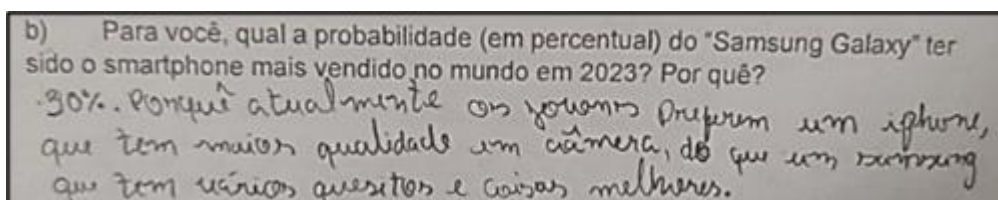 b) Para você, qual a probabilidade (em percentual) do "Samsung Galaxy" ter
sido o smartphone mais vendido no mundo em 2023? Por quê?
30%. Porquê atualmente os jovens preferem um iphone,
que tem maior qualidade em câmera, do que um sumsung
que tem vários quesitos e coisas melhores.